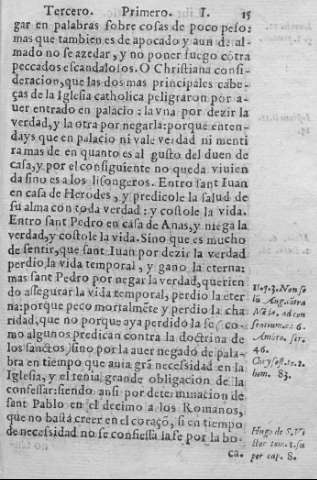 Tercero. Primero. I. 15
gar en palabras sobre cosas de poco peso:
mas que tambien es de apocado y aun desal-
mado no se azedar, y no poner fuego cõtra
peccados escandalosos. O Christiana consi-
deracion, que las dos mas principales cabe-
ças de la Iglesia catholica peligraron por a-
uer entrado en palacio: la vna por dezir la
verdad, y la otra por negarla: porque enten-
days que en palacio ni vale verdad ni menti
ra mas de en quanto es al gusto del dueño de
casa, y por el consiguiente no queda viuien
da sino es a los lisongeros. Entro sant Iuan
en casa de Herodes, y predicole la salud de
su alma con toda verdad: y costole la vida.
Entro sant Pedro en casa de Anas, y niega la
verdad, y costole la vida. Sino que es mucho
de sentir, que sant Iuan por dezir la verdad
perdio la vida temporal, y gano la eterna:
mas sant Pedro por negar la verdad, querien
do assegurar la vida temporal, perdio la eter
na: porque peco mortalmẽte y perdio la cha
ridad, que no porque aya perdido la fe, co-
mo algunos predican contra la doctrina de
los sanctos, sino por la auer negado de pala-
bra en tiempo que auia grã necessidad en la
Iglesia, y el tenia grande obligacion de la
confessar: siendo ansi por determinacion de
sant Pablo en el decimo a los Romanos,
que no bastá creer en el coraçõ, si en tiempo
de necessidad no se confiessa la fe por la bo-
ca.
Non se
Augustin
46.
Chrysost. to. 2.
hom. 83.
Hugo de S. Vi
ctor tom. 1. su
per cap. 8.